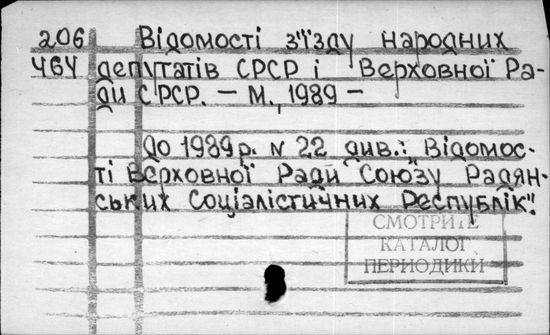 206 Відомості з'їзду народних
464 депутатів СРСР і Верховної Ра-
ди СРСР. – М., 1989 –
До 1989 р. N 22 див.: Відомос-
ті Верховної Ради Союзу Радян-
ських Соціалістичних Республік".
СМОТРИТЕ
КАТАЛОГ
ПЕРИОДИКИ